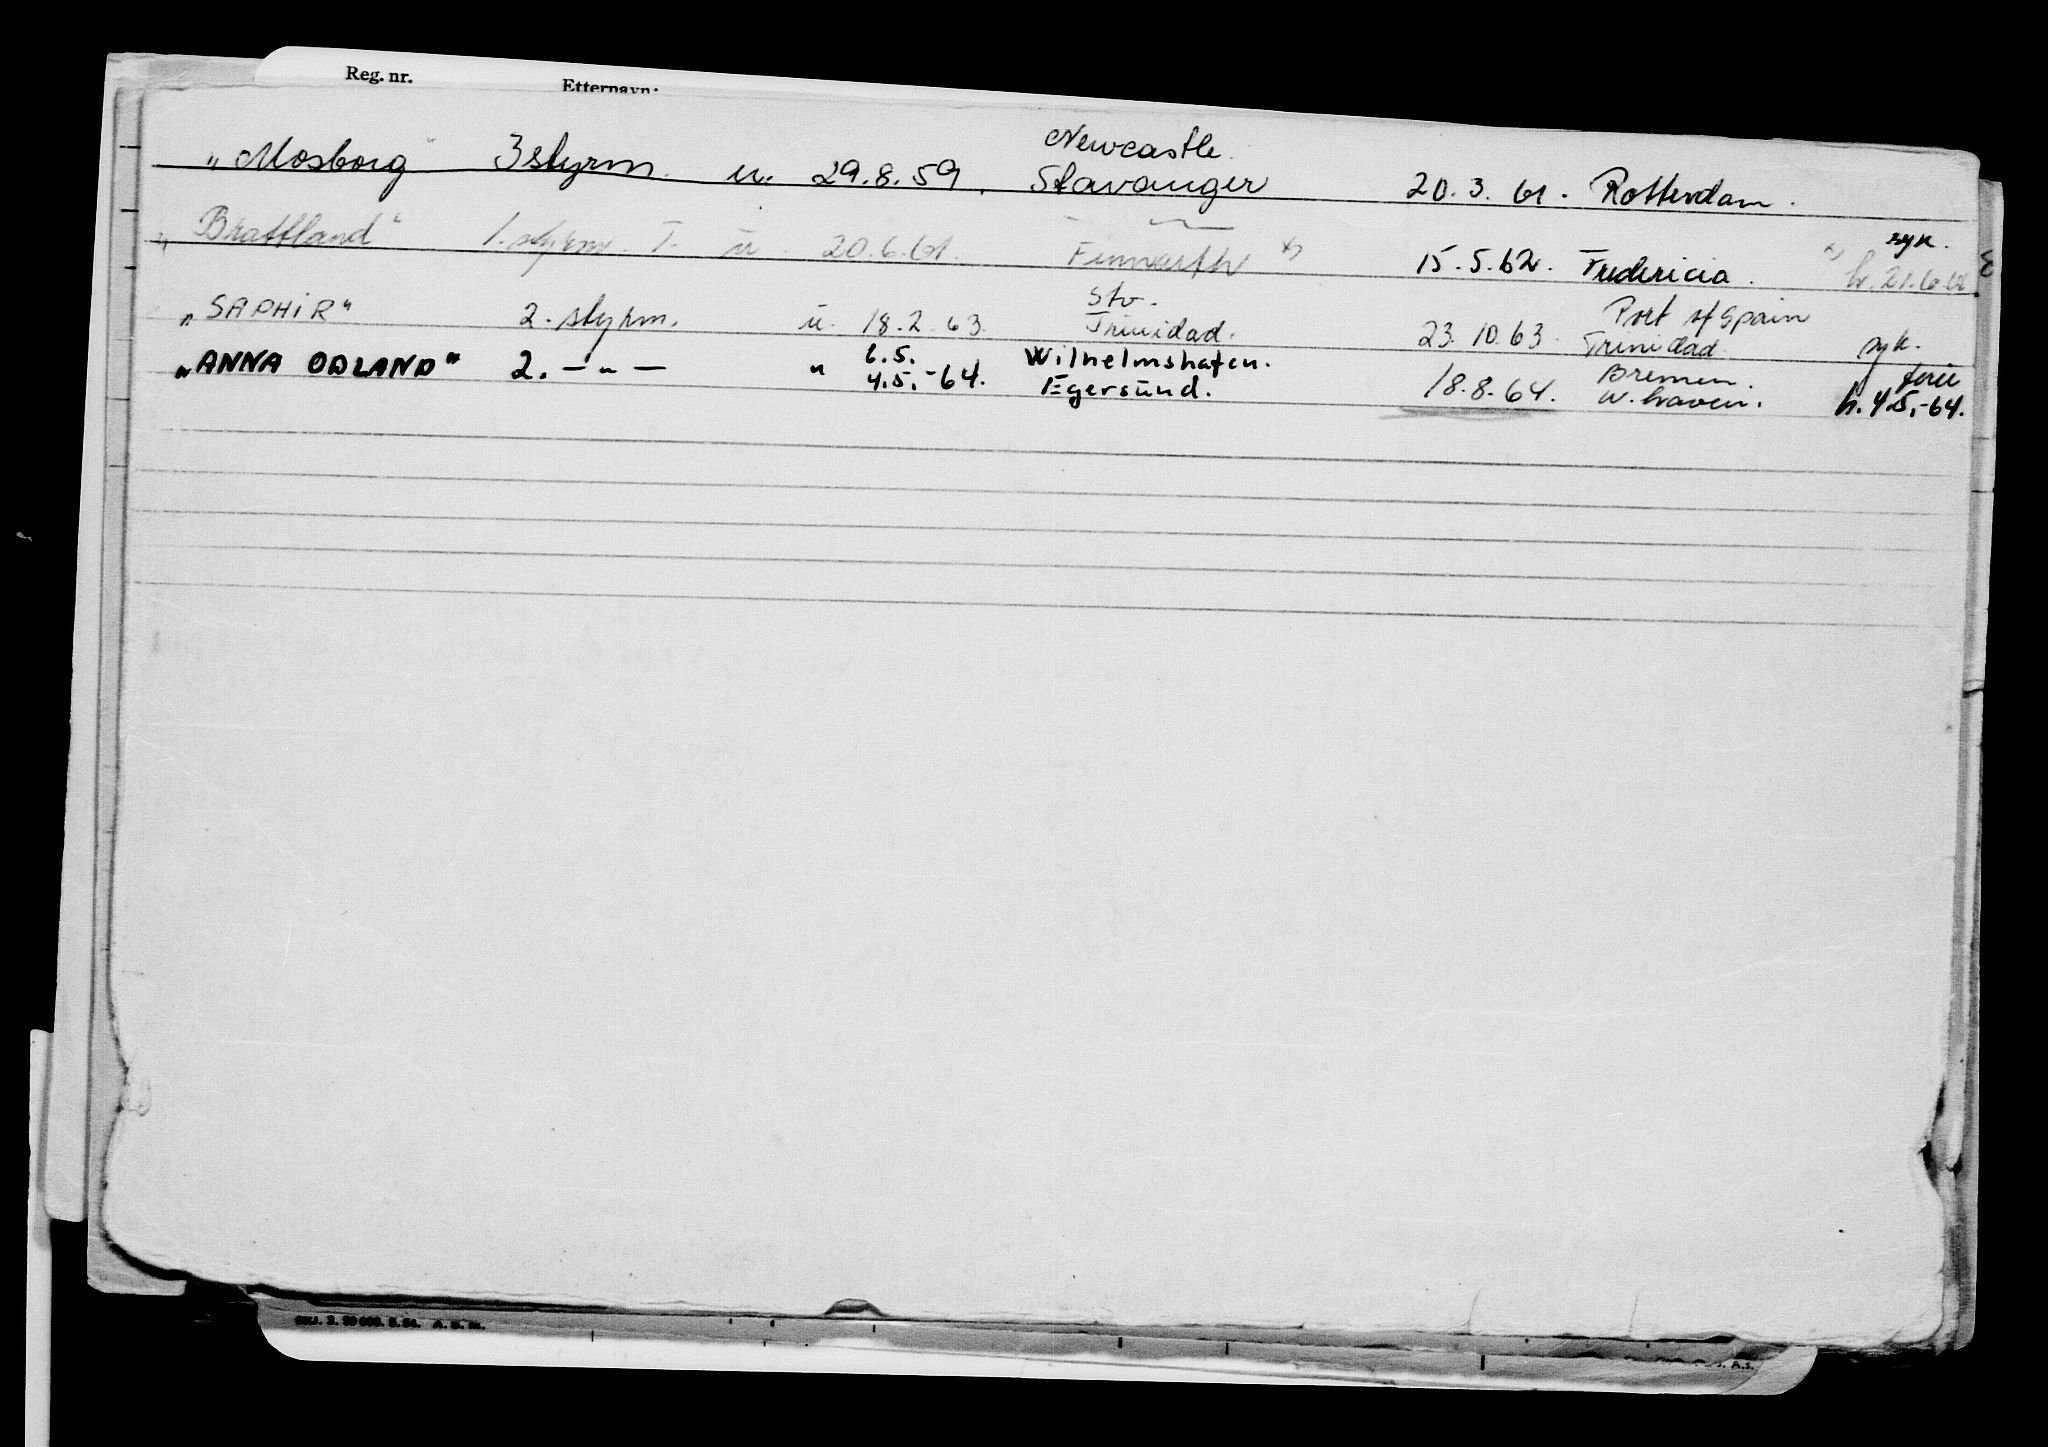 Reg. nr. Etternavn:
Newcastle.
„Mosborg" 3 styrm. u. 29.8.59. Stavanger 20.3.61. Rotterdam.
„Brattland" 1. styrm. T. u. 20.6.61. *) 15.5.62. Fredericia. syk. *) h. 21.6.61
Stv. Port of Spain
„SAPHIR" 2. styrm. u. 18.2.63. Trinidad. 23.10.63. Trinidad. syk.
6.5. Wilhelmshafen. Bremen. ferie
„ANNA ODLAND" 2. — „ — " 4.5.-64. Egersund. 18.8.64. W. haven. h. 4.5.-64.